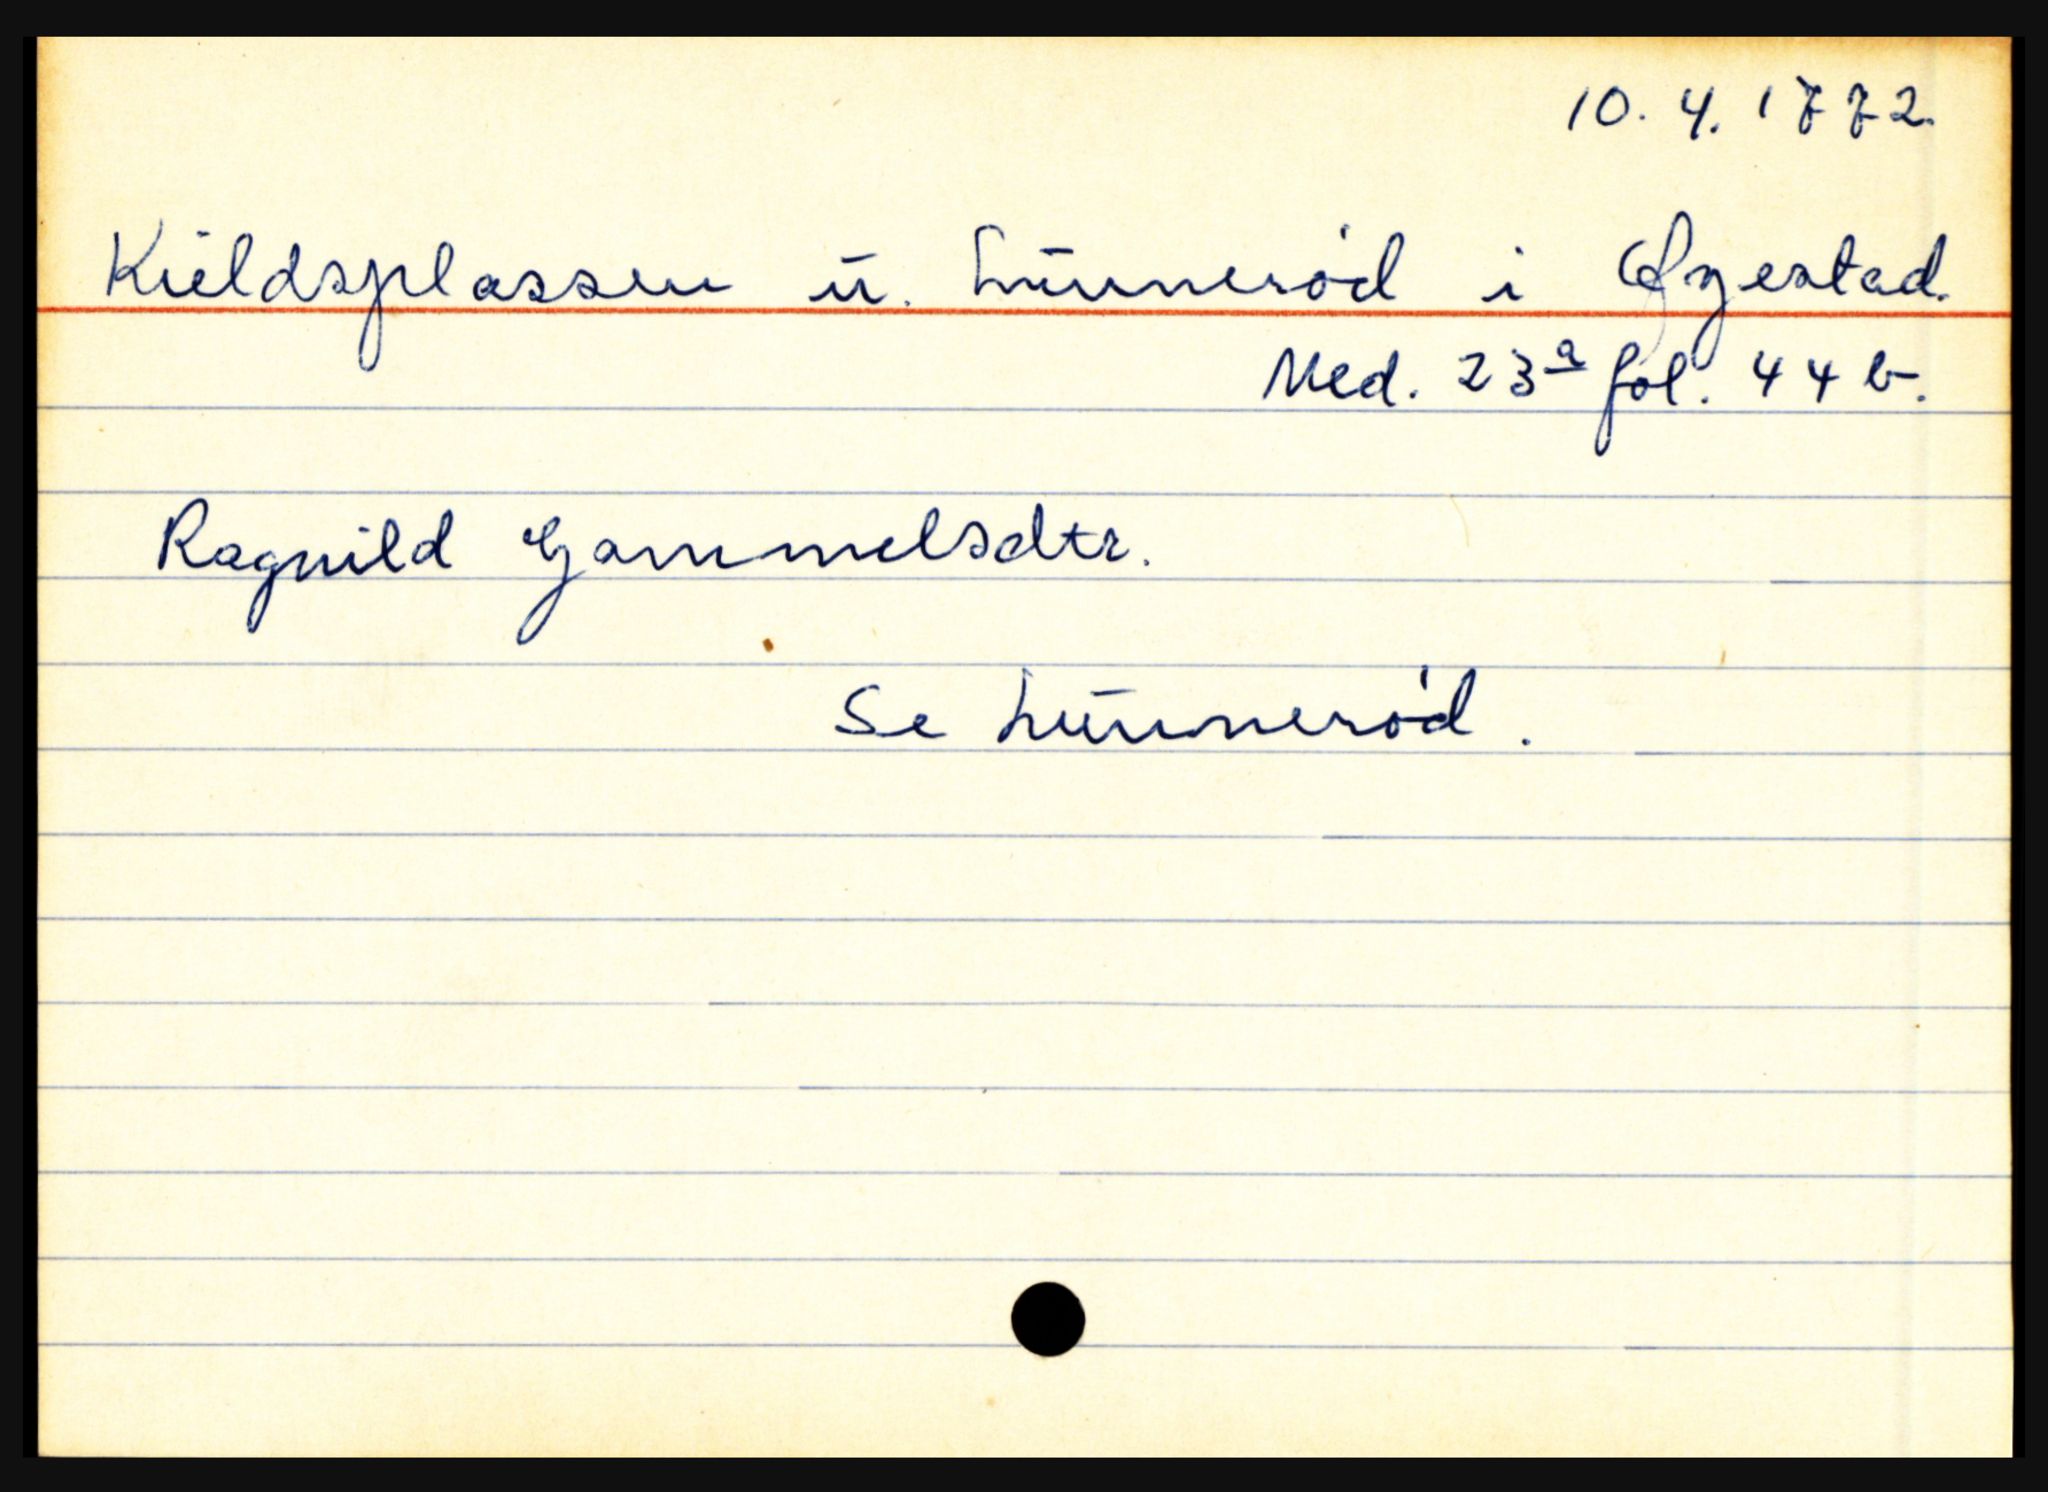 10. 4. 1772.
Kieldsplassen u. Lunnerød i Øyestad.
Ned. 23ª fol. 44 b.
Ragnild Gammelsdtr.
Se Lunnerød.